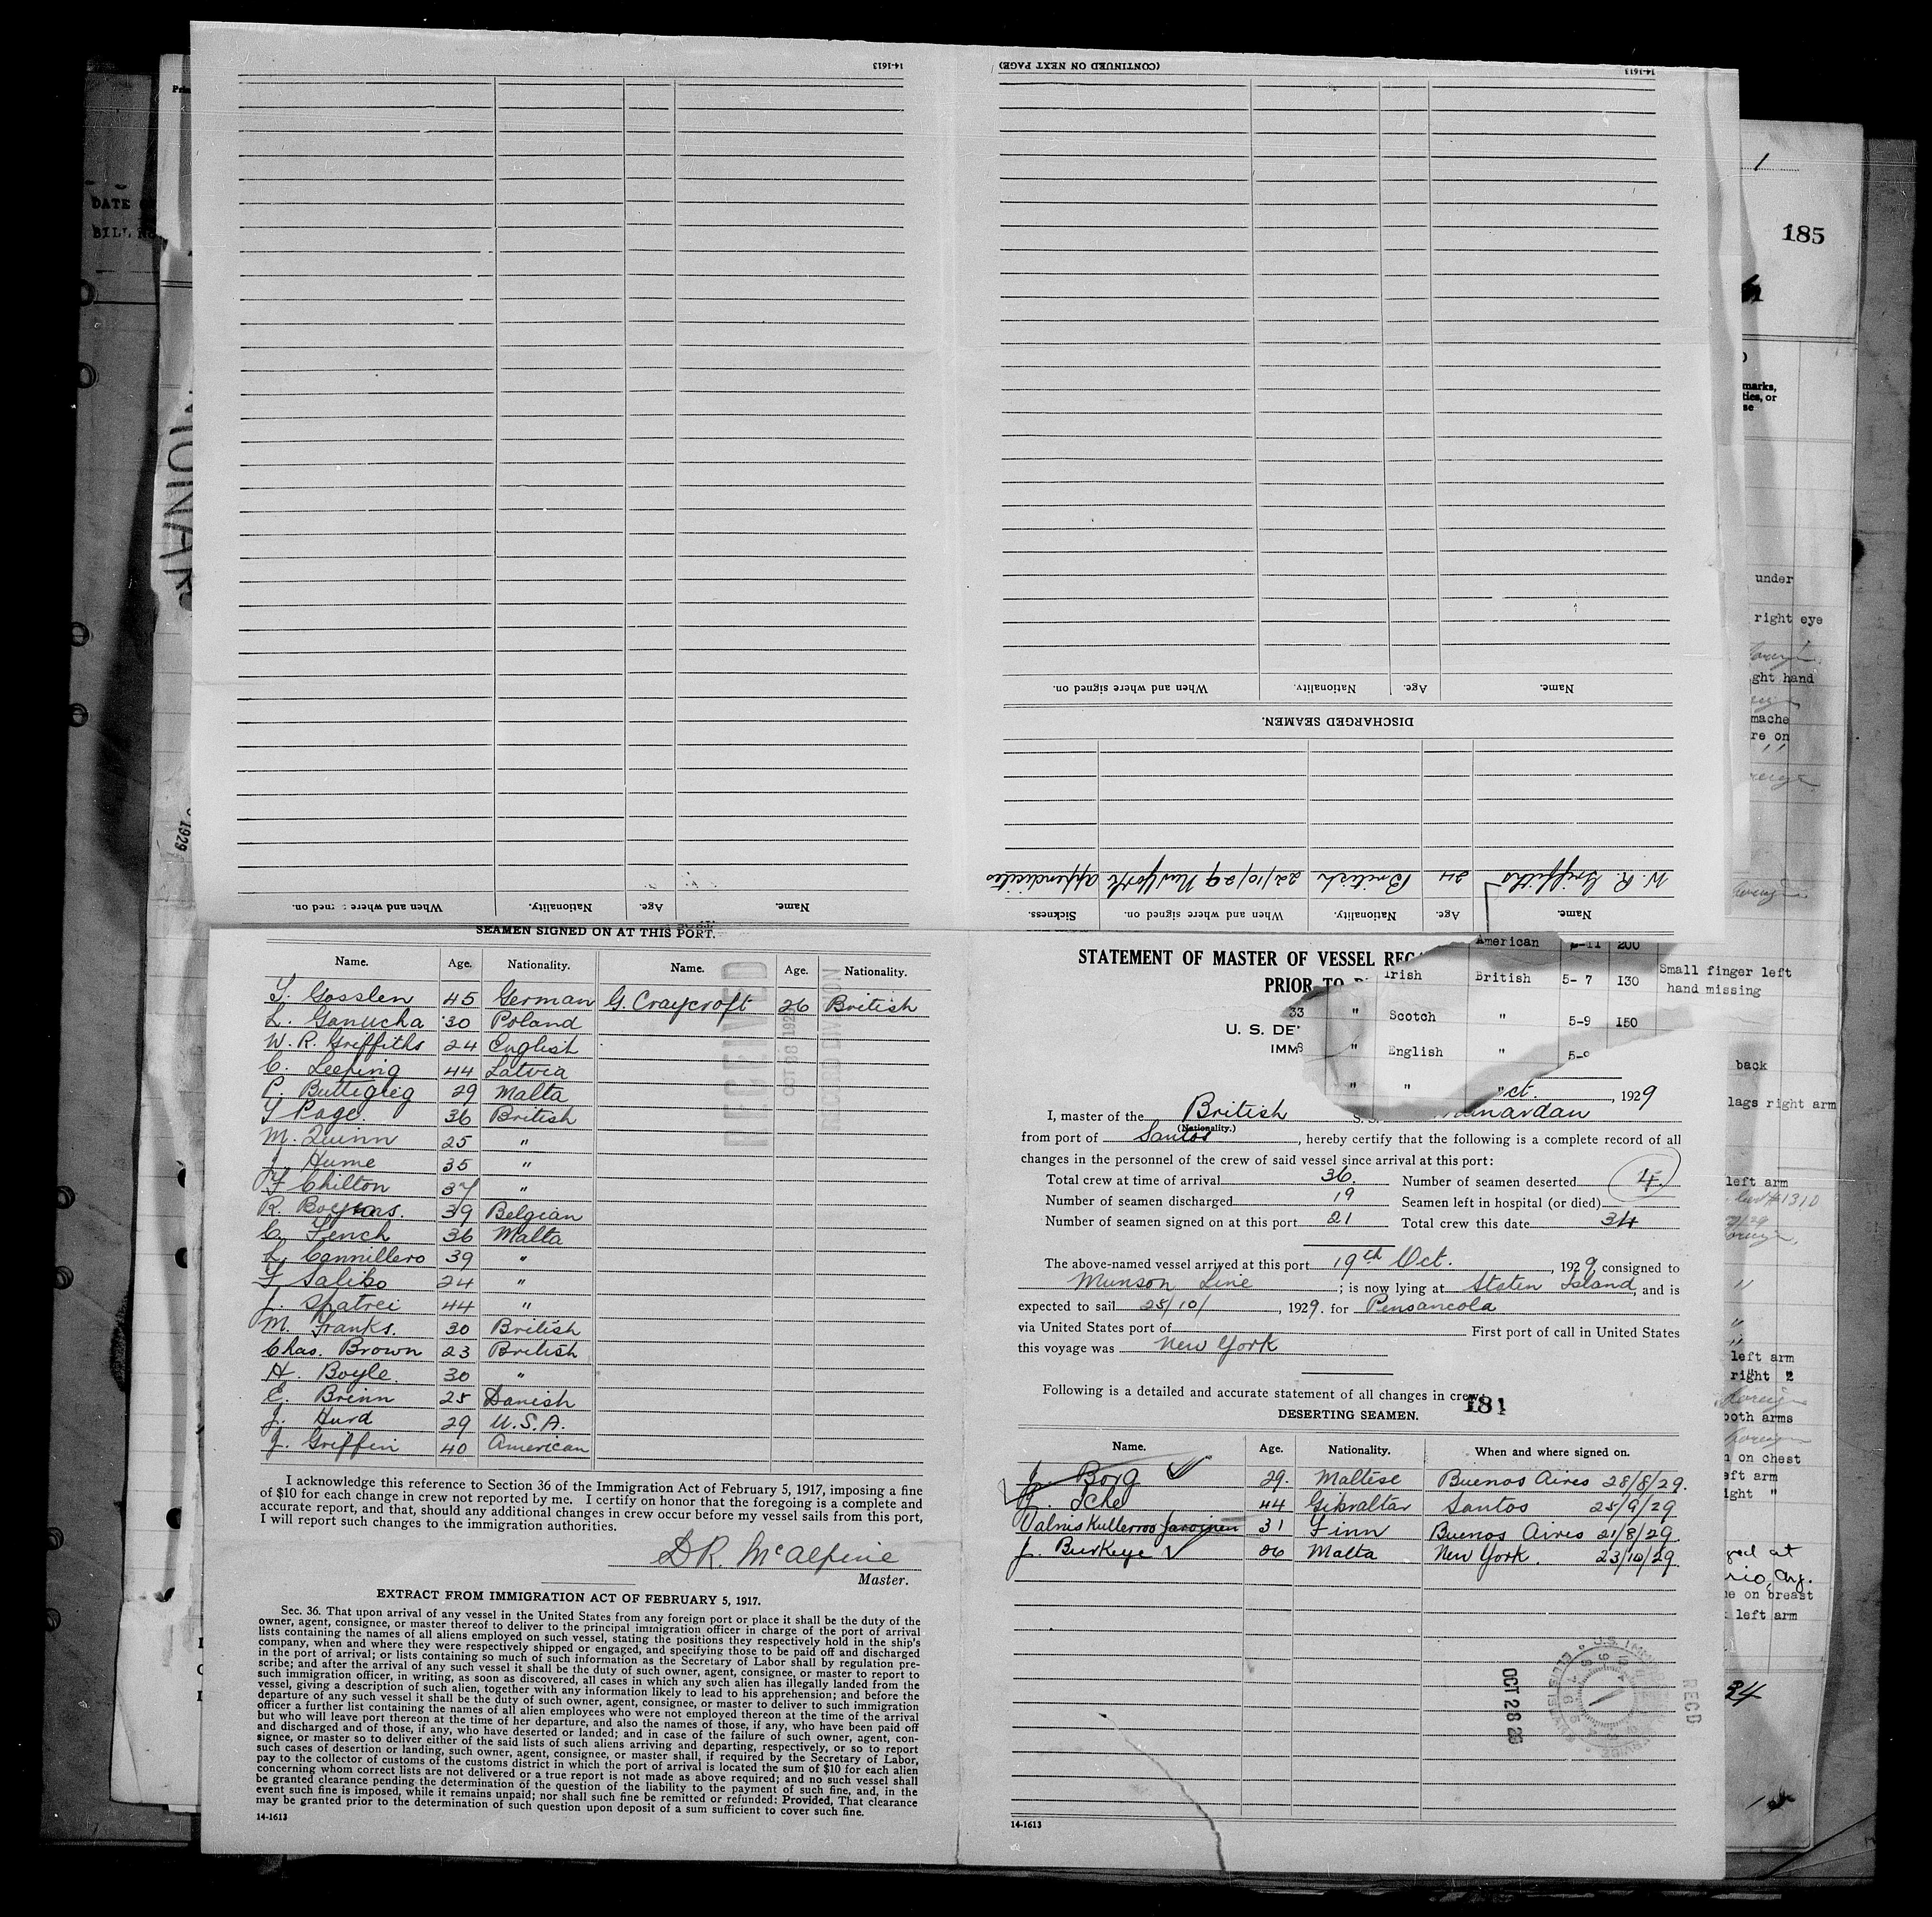 14-1613
(CONTINUED ON NEXT PAGE)
14-1613
DATE
BILL
185
1
marks,
ties, or
se
under
right eye
ght hand
mache
re on
Name. Age. Nationality. When and where signed on.
DISCHARGED SEAMEN.
W. R. Griffiths 24 British 22/10/29 New York appendicitis
Name. Age. Nationality. When and where signed on. Sickness.
Name. Age. Nationality. When and where signed on.
1929
SEAMEN SIGNED ON AT THIS PORT.
Name. Age. Nationality. Name. Age. Nationality.
Gosslen 45 German G. Craycroft 26 British
L. Ganucha 30 Poland
W. R. Griffiths 24 English
C. Leeping 44 Latvia
P. Buttigieg 29 Malta
Page. 36 British
M. Quinn 25 "
J. Hume 35 "
F Chilton 37 "
R. 39 Belgian
C. Fench 36 Malta
Cannillero 39 "
F Saliko 24 "
J. Spatrei 44 "
M. Franks. 30 British
Chas. Brown 23 British
H. Boyle. 30 "
E. Breinn 25 Danish
J. Hurd 29 U.S.A.
J. Griffin 40 American
RECEIVED
I acknowledge this reference to Section 36 of the Immigration Act of February 5, 1917, imposing a fine
of $10 for each change in crew not reported by me. I certify on honor that the foregoing is a complete and
accurate report, and that, should any additional changes in crew occur before my vessel sails from this port,
I will report such changes to the immigration authorities.
D R. McAlpine
Master.
EXTRACT FROM IMMIGRATION ACT OF FEBRUARY 5, 1917.
Sec. 36. That upon arrival of any vessel in the United States from any foreign port or place it shall be the duty of the
owner, agent, consignee, or master thereof to deliver to the principal immigration officer in charge of the port of arrival
lists containing the names of all aliens employed on such vessel, stating the positions they respectively hold in the ship's
company, when and where they were respectively shipped or engaged, and specifying those to be paid off and discharged
in the port of arrival; or lists containing so much of such information as the Secretary of Labor shall by regulation pre-
scribe; and after the arrival of any such vessel it shall be the duty of such owner, agent, consignee, or master to report to
such immigration officer, in writing, as soon as discovered, all cases in which any such alien has illegally landed from the
vessel, giving a description of such alien, together with any information likely to lead to his apprehension; and before the
departure of any such vessel it shall be the duty of such owner, agent, consignee, or master to deliver to such immigration
officer a further list containing the names of all alien employees who were not employed thereon at the time of the arrival
but who will leave port thereon at the time of her departure, and also the names of those, if any, who have been paid off
and discharged and of those, if any, who have deserted or landed; and in case of the failure of such owner, agent, con-
signee, or master so to deliver either of the said lists of such aliens arriving and departing, respectively, or so to report
such cases of desertion or landing, such owner, agent, consignee, or master shall, if required by the Secretary of Labor,
pay to the collector of customs of the customs district in which the port of arrival is located the sum of $10 for each alien
concerning whom correct lists are not delivered or a true report is not made as above required; and no such vessel shall
be granted clearance pending the determination of the question of the liability to the payment of such fine, and, in the
event such fine is imposed, while it remains unpaid; nor shall such fine be remitted or refunded: Provided, That clearance
may be granted prior to the determination of such question upon deposit of a sum sufficient to cover such fine.
14-1613
STATEMENT OF MASTER OF VESSEL REG
PRIOR TO
U. S. DE
IMM
American 200
Irish British 5-7 130 Small finger left
hand missing
33 " Scotch " 5-9 150
8 " English "
" "
ct. , 1929
I, master of the British S. S. mardan
(Nationality.)
from port of Santos, hereby certify that the following is a complete record of all
changes in the personnel of the crew of said vessel since arrival at this port:
Total crew at time of arrival 36. Number of seamen deserted 4.
Number of seamen discharged 19 Seamen left in hospital (or died)
Number of seamen signed on at this port 21 Total crew this date 34
The above-named vessel arrived at this port 19th Oct. , 1929 consigned to
Munson Line ; is now lying at Staten Island, and is
expected to sail 25/10/ , 1929. for Pensancola
via United States port of First port of call in United States
this voyage was New York
Following is a detailed and accurate statement of all changes in crew:
181
DESERTING SEAMEN.
Name. Age. Nationality. When and where signed on.
J. Borg 29. Maltese Buenos Aires 28/8/29.
Iche 44 Gibraltar Santos 25/9/29
Valnis Kullervoo Jarvinen 31 Finn Buenos Aires 21/8/29.
J. Burkeye 26 Malta New York. 23/10/29.
OCT 28
RECD
14-1613
back
lags right arm
left arm
left arm
right 2
both arms
on chest
eft arm
ight "
on breast
left arm
34